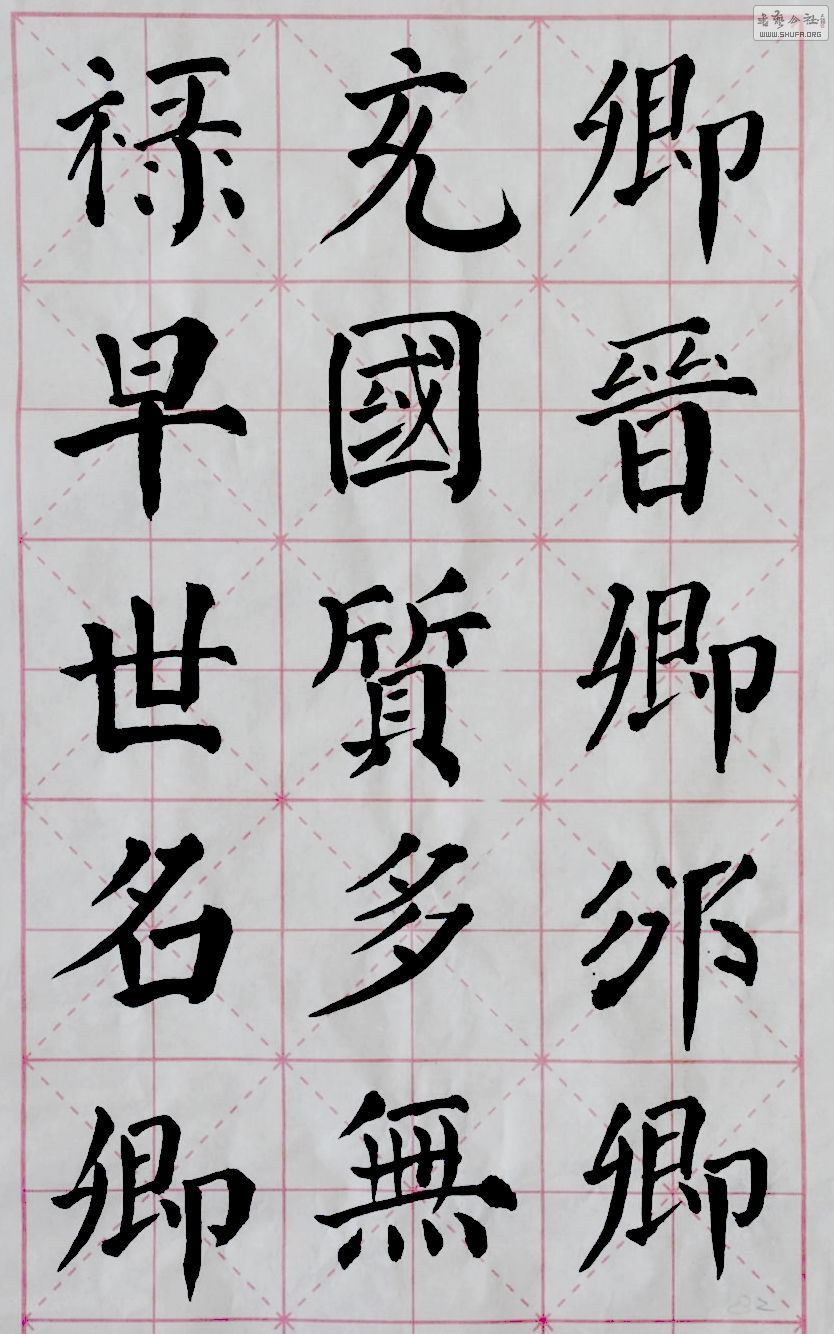 卿晉卿邠卿
充國質多無
禄早世名卿
書藝公社
WWW.SHUFA.ORG